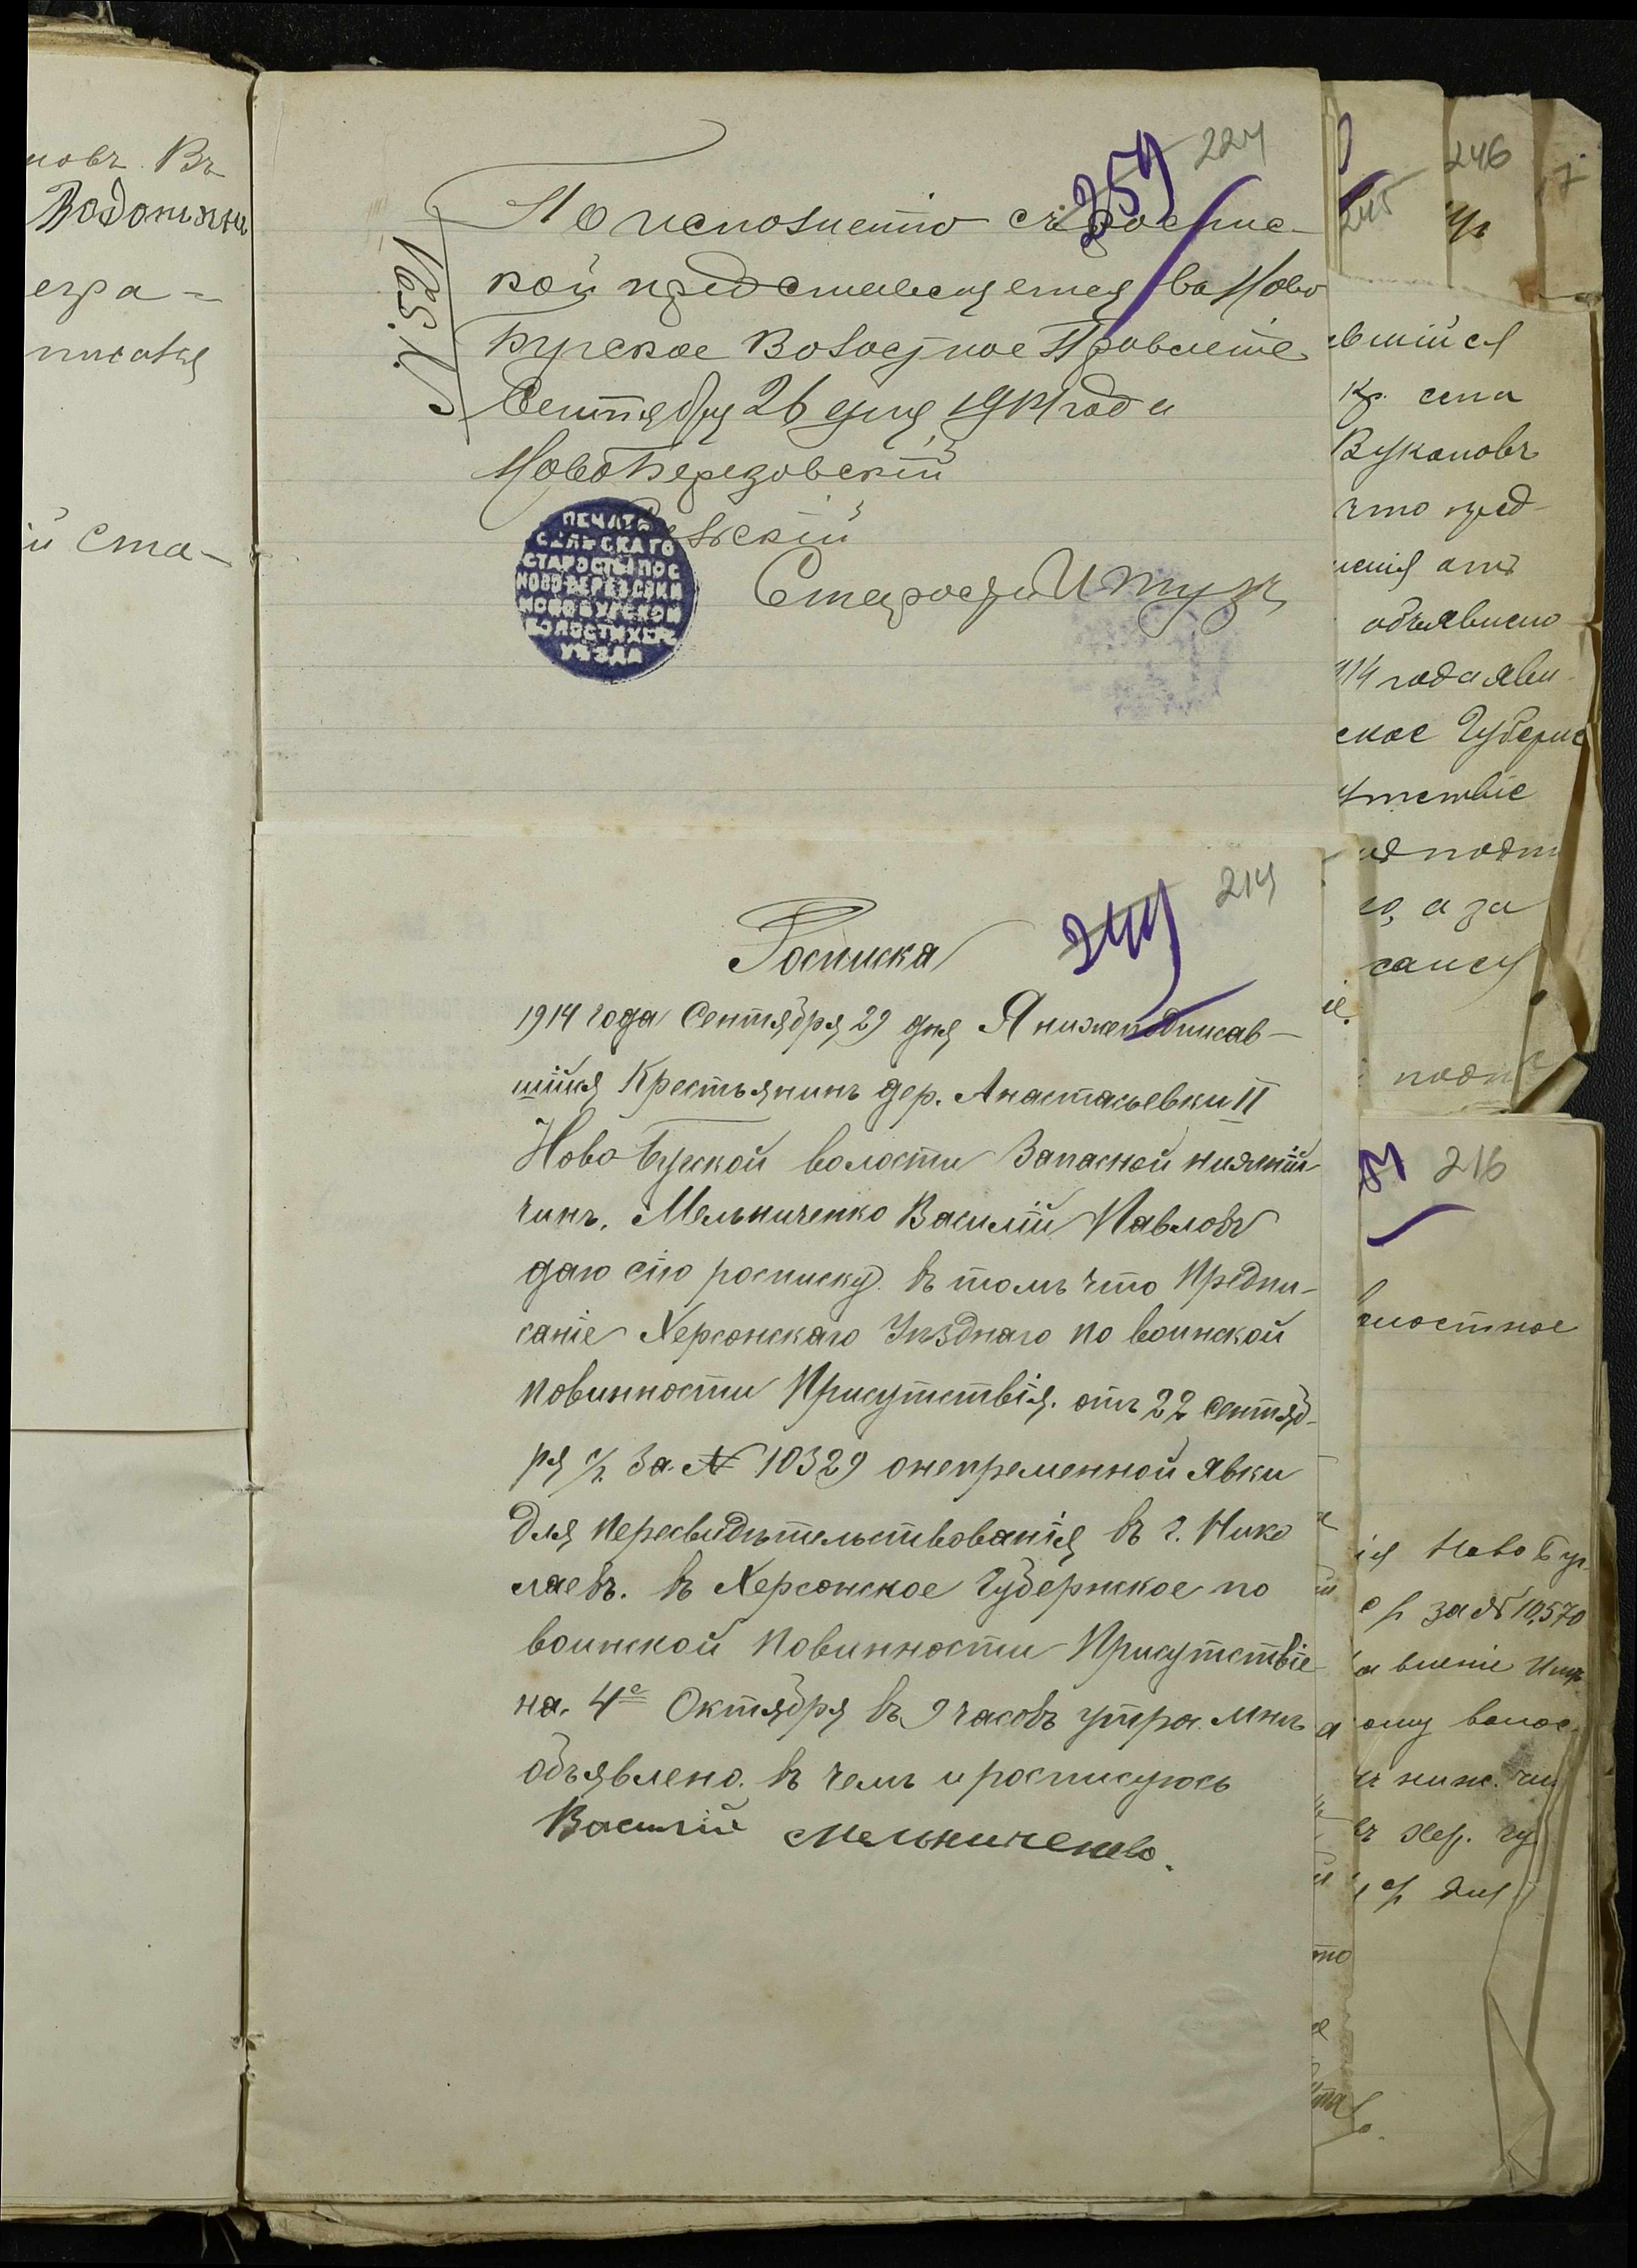 новъ. Въ
Водопьяна
егра=
писаня
й Ста-
224
259
№ 521
По исполнению съ роспис-
кой представляется въ Ново
Бугское Волостное Правление
Сентября 26 дня 1914 года
НовоБерезовский
Сельский
Староста Штулъ
ПЕЧАТЬ
СЕЛЬСКАГО
СТАРОСТЫ ПОС
НОВО-БЕРЕЗОВКИ
НОВОБУГСКОЙ
ВОЛОСТИ ХЕР.
УѢЗДА
214
244
Росписка
1914 года Сентября 29 дня Я нижеподписав-
шійся Крестьянинъ дер. Анастасьевки II
Ново Бугской волости Запасной нижній
чинъ. Мельниченко Василій Павловъ
даю сію росписку въ томъ что Предпи-
саніе Херсонскаго Уѣзднаго по воинской
повинности Присутствія. отъ 22 Сентяб-
ря с/г. За. № 10329 онепременной явки
Для пересвидѣтельствованія въ г. Нико
лаевъ. въ Херсонское Губернское по
воинской повинности Присутствіе
на. 4е Октября въ 9 часовъ утра. мнѣ
объявлено. въ чемъ и росписуюсь
Василій Мельниченко.
245
246
7
вшийся
Кр. села
Вукановъ
что пред-
объявлено
914 года яви-
ское Губерн
утствіе
а за
216
волостное
ія Ново Буг.
с г за № 10,570
ому волос-
ъ ниж. чи
ъ Хер. гу
с/г для